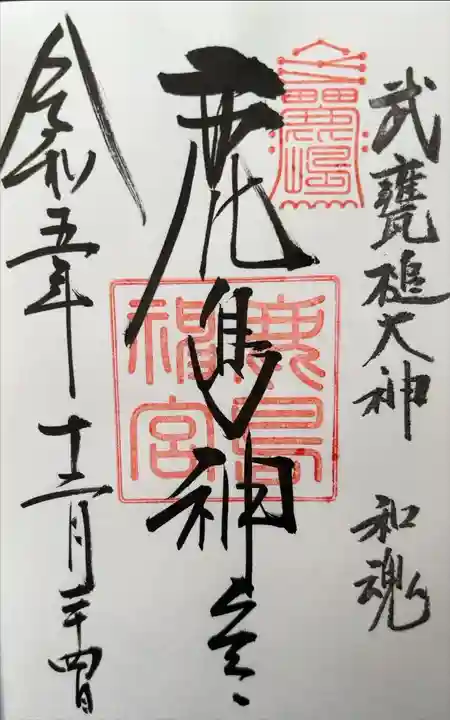 武甕槌大神 和魂
鹿島神宮
令和五年十二月二十四日
鹿島
宮